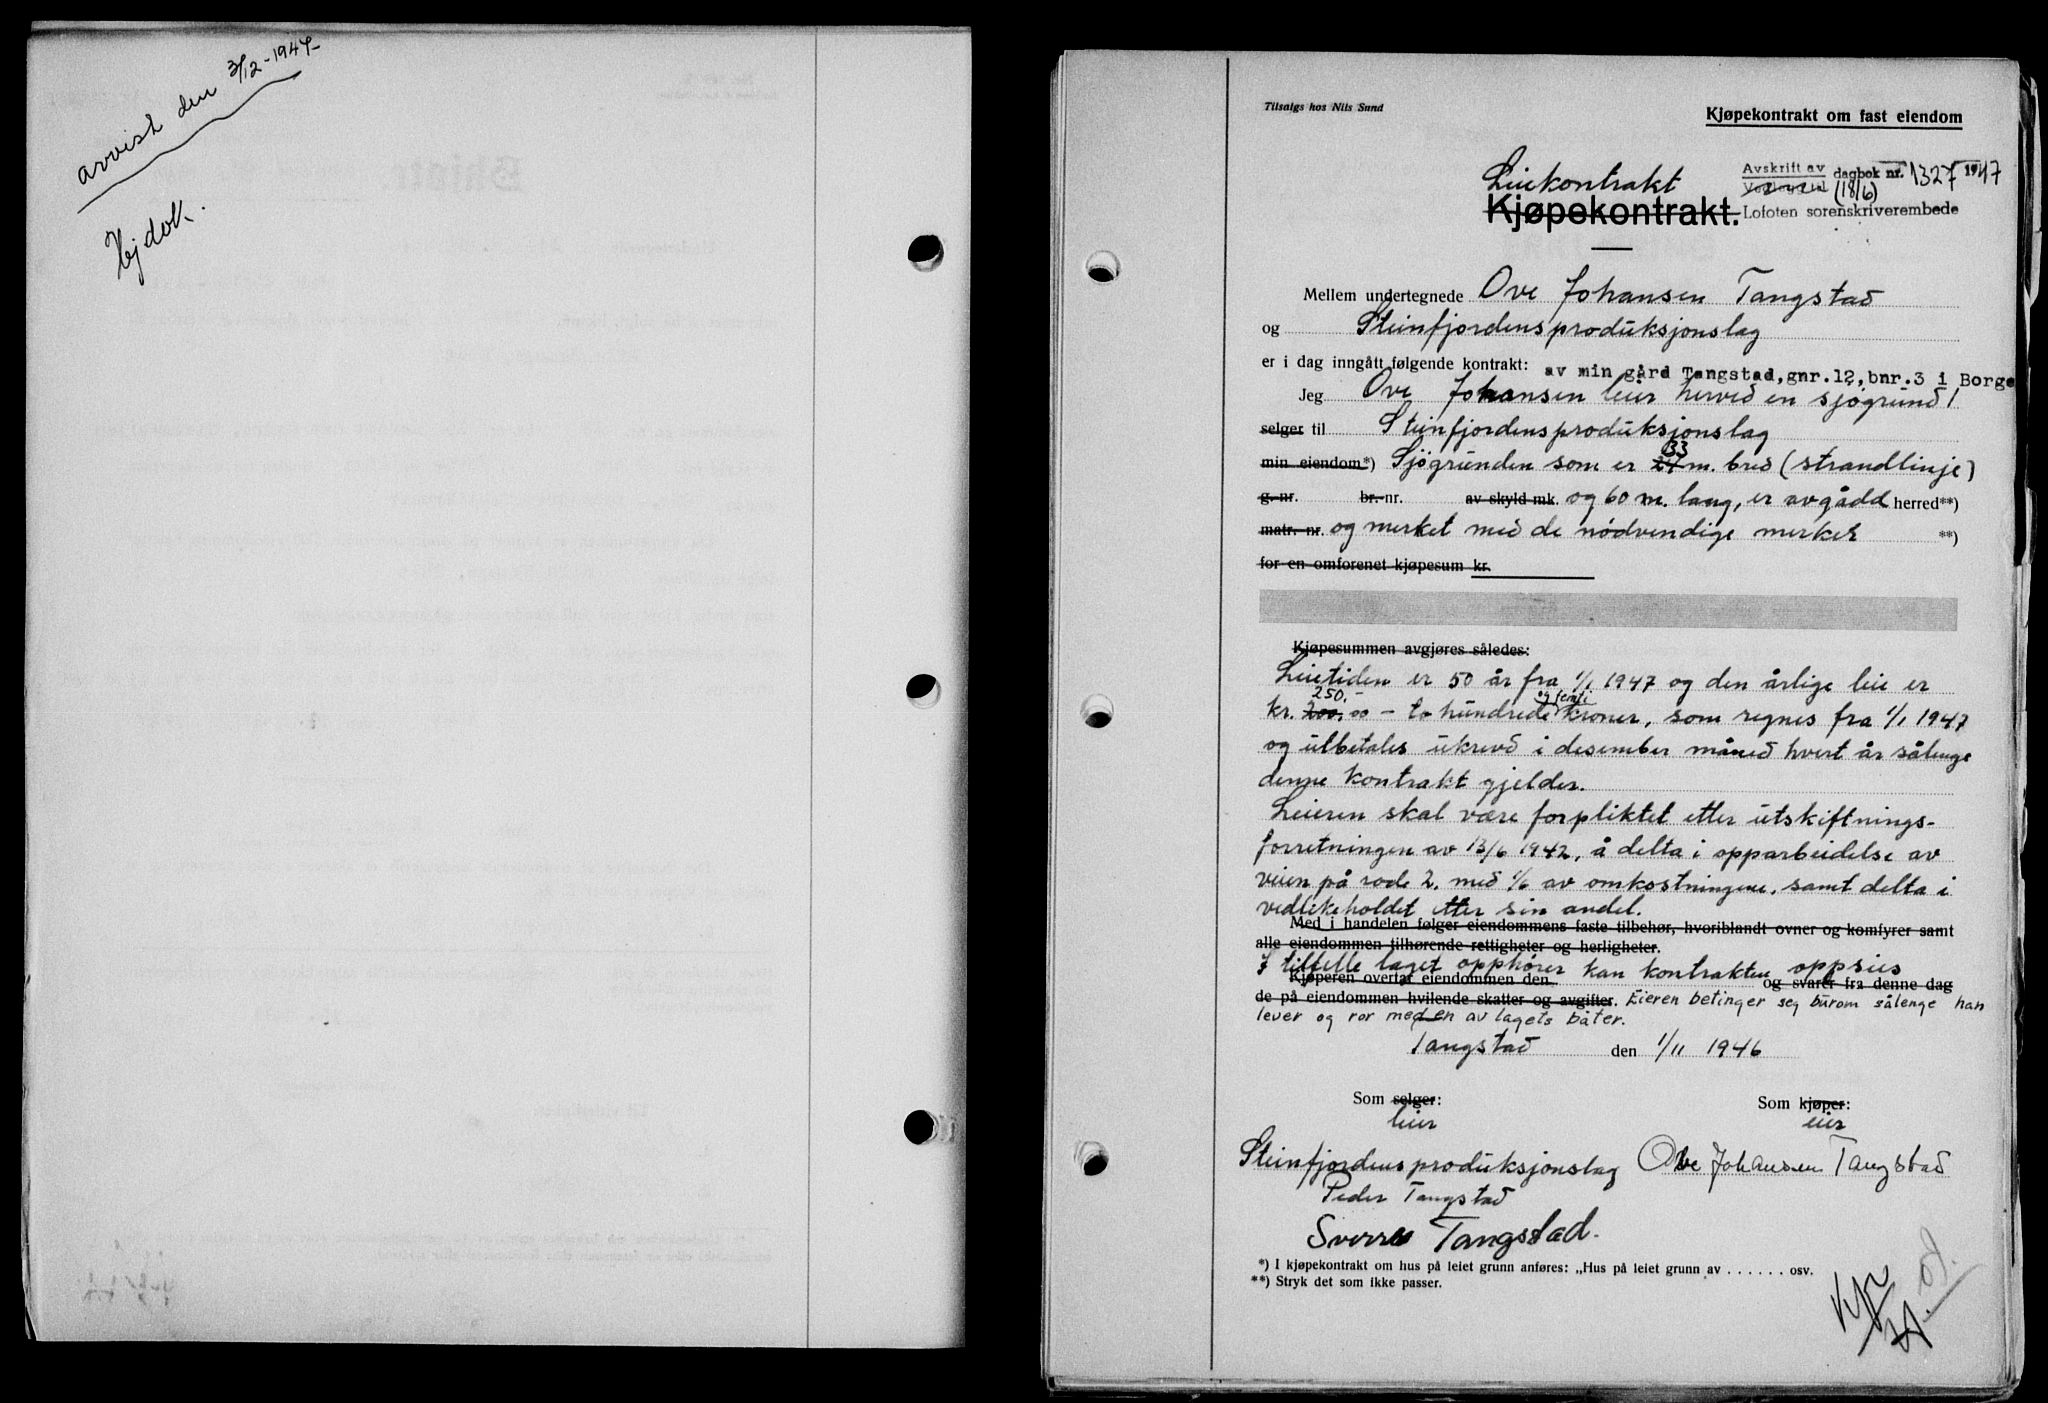 avvist den 3/12-1947-
Hjdok.
Tilsalgs hos Nils Sund
Kjøpekontrakt om fast eiendom
Leiekontrakt
Avskrift av
dagbok nr. 1327 1947
(18/6)
Kjøpekontrakt.
Lofoten sorenskriverembede
Mellem undertegnede Ove Johansen Tangstad
og Steinfjordens produksjonslag
er i dag inngått følgende kontrakt: av min gård Tangstad, gnr.12, bnr.3 i Borge
Jeg Ove Johansen leier herved en sjøgrund /
selger til Steinfjordens produksjonslag
min eiendom*) Sjøgrunden som er 33 m. bred (strandlinje)
g.-nr. br.-nr. av skyld mk. og 60 m. lang, er avgådd herred**)
matr.-nr. og merket med de nödvendige merker **)
for en omforenet kjøpesum kr.
Kjøpesummen avgjøres således:
Leietiden er 50 år fra 1/1 1947 og den årlige leie er
250. og femti
kr. 200.00 - to hundrede kroner, som regnes fra 1/1 1947
og utbetales ukrevd i desember måned hvert år sålenge
denne kontrakt gjelder.
Leieren skal være forpliktet etter utskiftnings-
forretningen av 13/6 1942, å delta i opparbeidelse av
veien på rode 2. med 1/6 av omkostningene, samt delta i
vedlikeholdet etter sin andel.
Med i handelen følger eiendommens faste tilbehør, hvoriblandt ovner og komfyrer samt
alle eiendommen tilhørende rettigheter og herligheter.
I tilfelle laget opphører kan kontrakten oppsies
Kjøperen overtar eiendommen den og svarer fra denne dag
de på eiendommen hvilende skatter og avgifter. Eieren betinger seg burom sålenge han
lever og ror med en av lagets båter.
Tangstad den 1/11 1946
Som selger: Som kjøper:
leier eier
Steinfjordens produksjonslag Ove Johansen Tangstad
Peder Tangstad
Sverre Tangstad.
*) I kjøpekontrakt om hus på leiet grunn anføres: „Hus på leiet grunn av . . . . . . osv.
**) Stryk det som ikke passer.